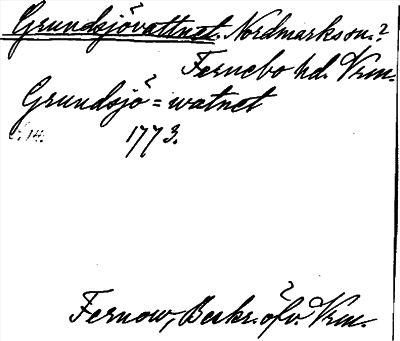 Grundsjövattnet. Nordmarks sn.?
Fernebo hd. Vrm.
Grundsjö=watnet
s. 14. 1773.
Fernow, Beskr. öfv. Vrm.